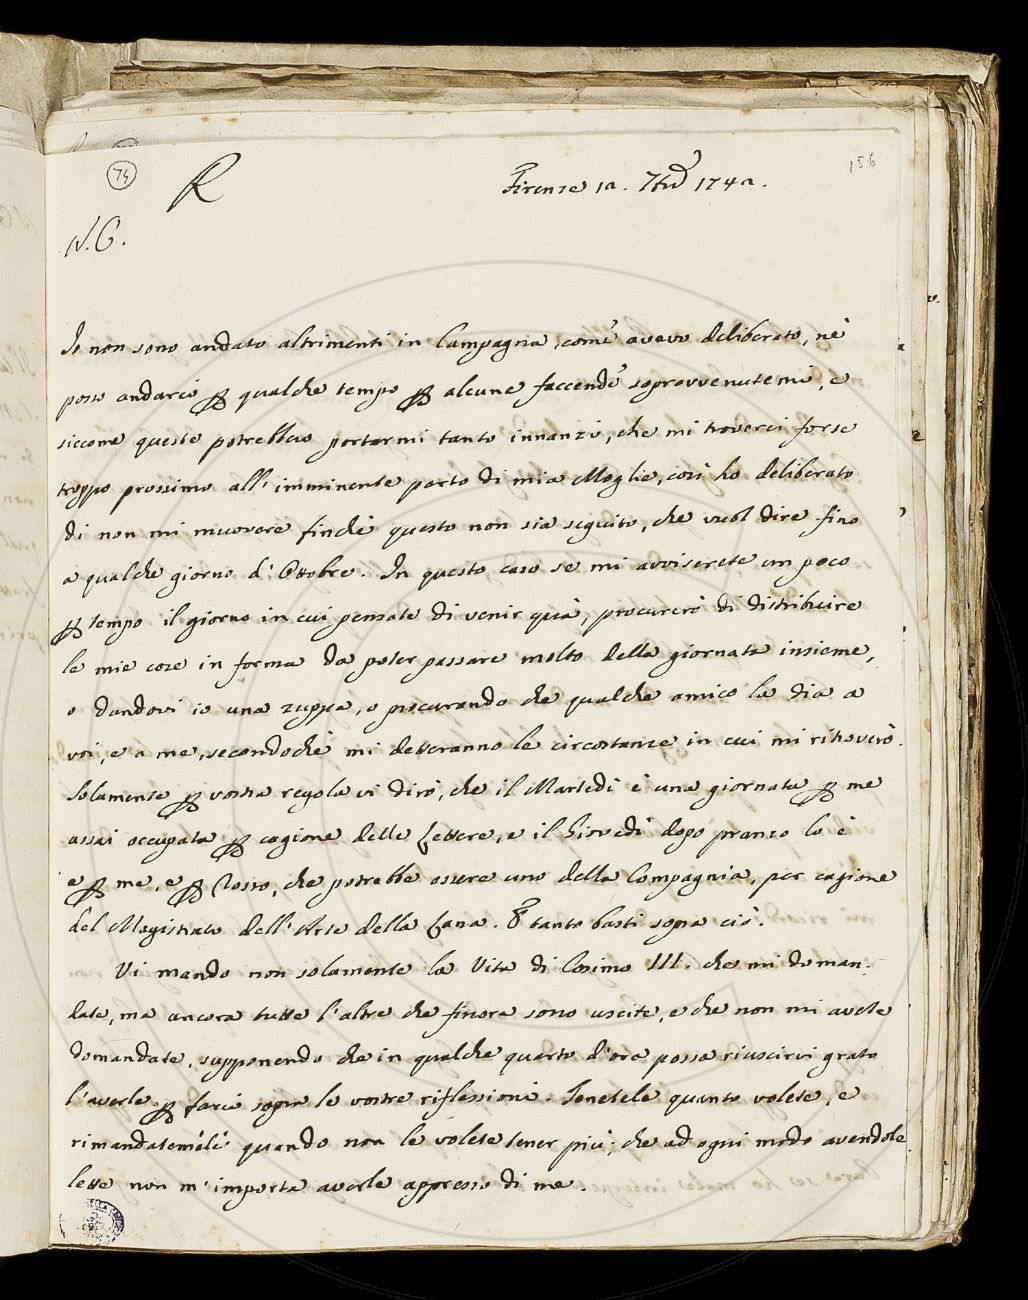 74
R
Firenze 12. 7bre 1742.
156
N. C.
Io non sono andato altrimenti in Campagna, come avevo deliberato, nè
posso andarci p qualche tempo p alcune faccende sopravvenutemi, e
siccome queste potrebbero portarmi tanto innanzi, che mi troverei forse
troppo prossimo all' imminente parto di mia Moglie, così ho deliberato
di non mi muovere finchè questo non sia seguito, che vuol dire fino
a qualche giorno d' Ottobre. In questo caso se mi avviserete un poco
p tempo il giorno in cui pensate di venir quà, procurerò di distribuire
le mie cose in forma da poter passare molto della giornata insieme,
o dandovi io una zuppa, o procurando che qualche amico la dia a
voi, e a me, secondochè mi detteranno le circostanze in cui mi ritroverò.
Solamente p vostra regola vi dirò, che il Martedì è una giornata p me
assai occupata p cagione delle Lettere, e il Giovedì dopo pranzo lo è
e p me, e p Rosso, che potrebbe essere uno della Compagnia, per cagione
del Magistrato dell' Arte della Lana. E tanto basti sopra ciò.
Vi mando non solamente la Vita di Cosimo III. che mi doman-
date, ma ancora tutte l' altre che finora sono uscite, e che non mi avete
domandate, supponendo che in qualche quarto d' ora possa riuscirvi grato
l' averle p farci sopra le vostre riflessioni. Tenetele quanto volete, e
rimandatemele quando non le volete tener più; che ad ogni modo avendole
lette non m' importa averle appresso di me.